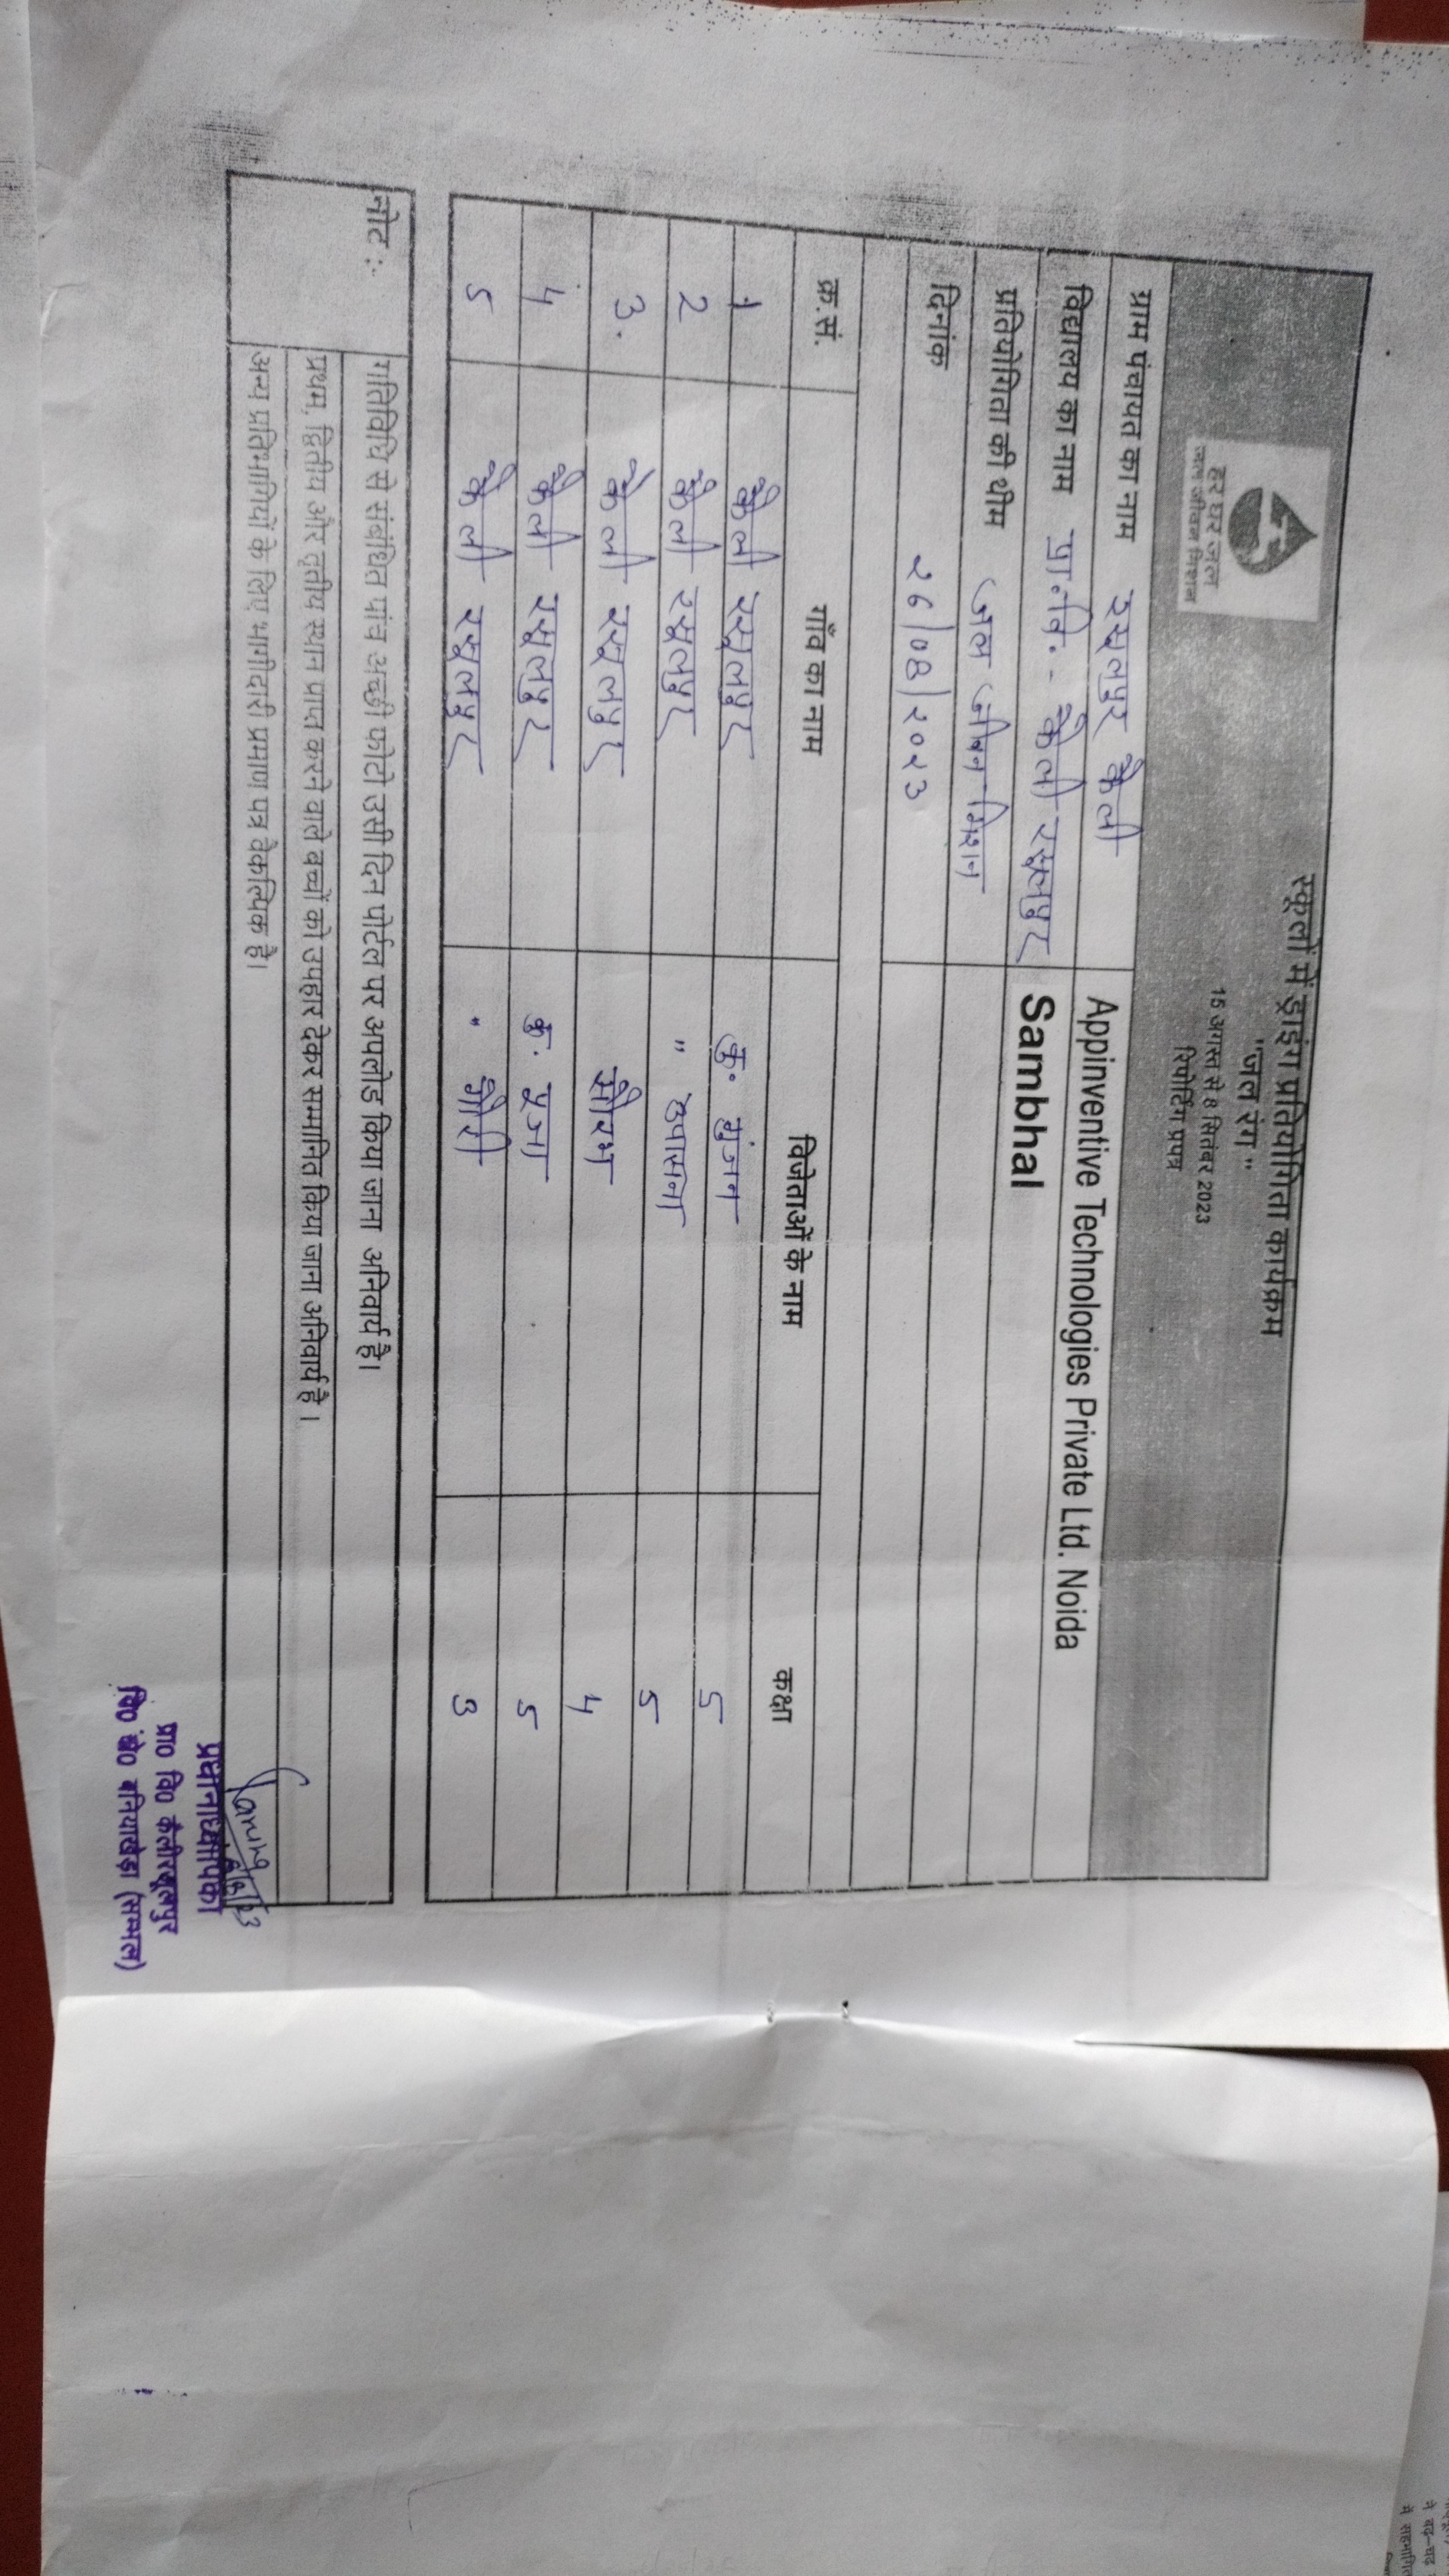 स्कूलों में ड्राइंग प्रतियोगिता कार्यक्रम
"जल रंग"
15 अगस्त से 8 सितंबर 2023
रिपोर्टिंग प्रपत्र
हर घर जल
जल जीवन मिशन
ग्राम पंचायत का नाम रसूलपुर कैली Appinventive Technologies Private Ltd. Noida
विद्यालय का नाम प्रा०वि०- कैली रसूलपुर Sambhal
प्रतियोगिता की थीम जल जीवन मिशन
दिनांक २6/08/२0२3
क्र.सं. गाँव का नाम विजेताओं के नाम कक्षा
1 कैली रसूलपुर कु॰ गुंजन 5
2 कैली रसूलपुर " उपासना 5
3. कैली रसूलपुर सौरभ 4
4 कैली रसूलपुर कु॰ पूजा 5
5 कैली रसूलपुर " गौरी 3
नोट :- गतिविधि से संबंधित पांच अच्छी फोटो उसी दिन पोर्टल पर अपलोड किया जाना अनिवार्य है।
प्रथम, द्वितीय और तृतीय स्थान प्राप्त करने वाले बच्चों को उपहार देकर सम्मानित किया जाना अनिवार्य है।
अन्य प्रतिभागियों के लिए भागीदारी प्रमाण पत्र वैकल्पिक है।
प्रधानाध्यापिका
प्रा० वि० कैलीरसूलपुर
वि० खे० बनियाखेडा (सम्भल)